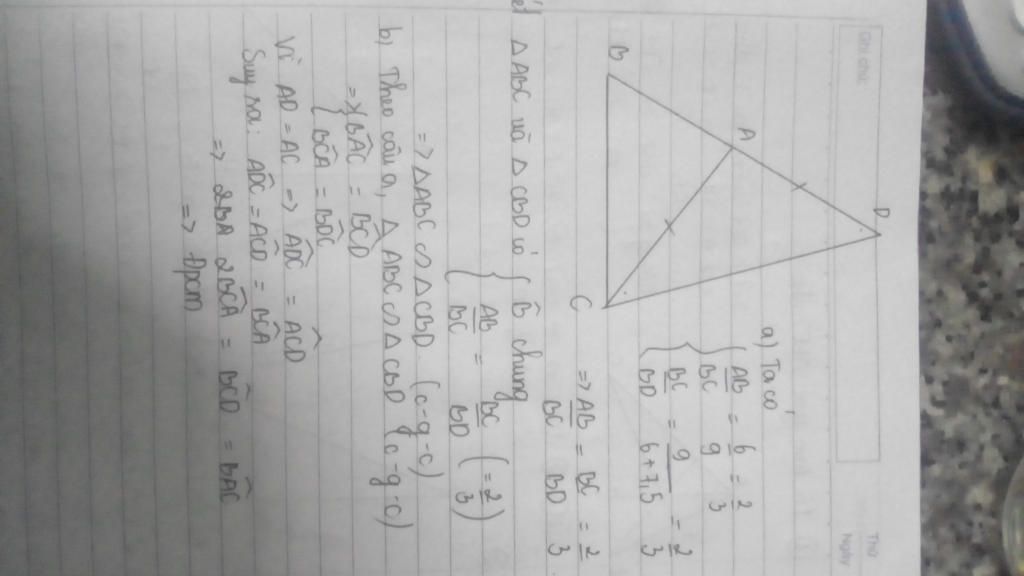 Ghi chú:
Thứ
Ngày
D
A
B
C
a) Ta có
{ AB/BC = 6/9 = 2/3
{ BC/BD = 9/(6+7,5) = 2/3
=> AB/BC = BC/BD = 2/3
ΔABC và ΔCBD có { B̂ chung
{ AB/BC = BC/BD (= 2/3)
=> ΔABC ∽ ΔCBD (c-g-c)
b) Theo câu a, ΔABC ∽ ΔCBD (c-g-c)
=> { BÂC = BĈD
{ BĈA = BD̂C
Vì AD = AC => AD̂C = AĈD
Suy ra: AD̂C = AĈD = BĈA
=> 2BA 2BĈA = BĈD = BÂC
=> Đpcm